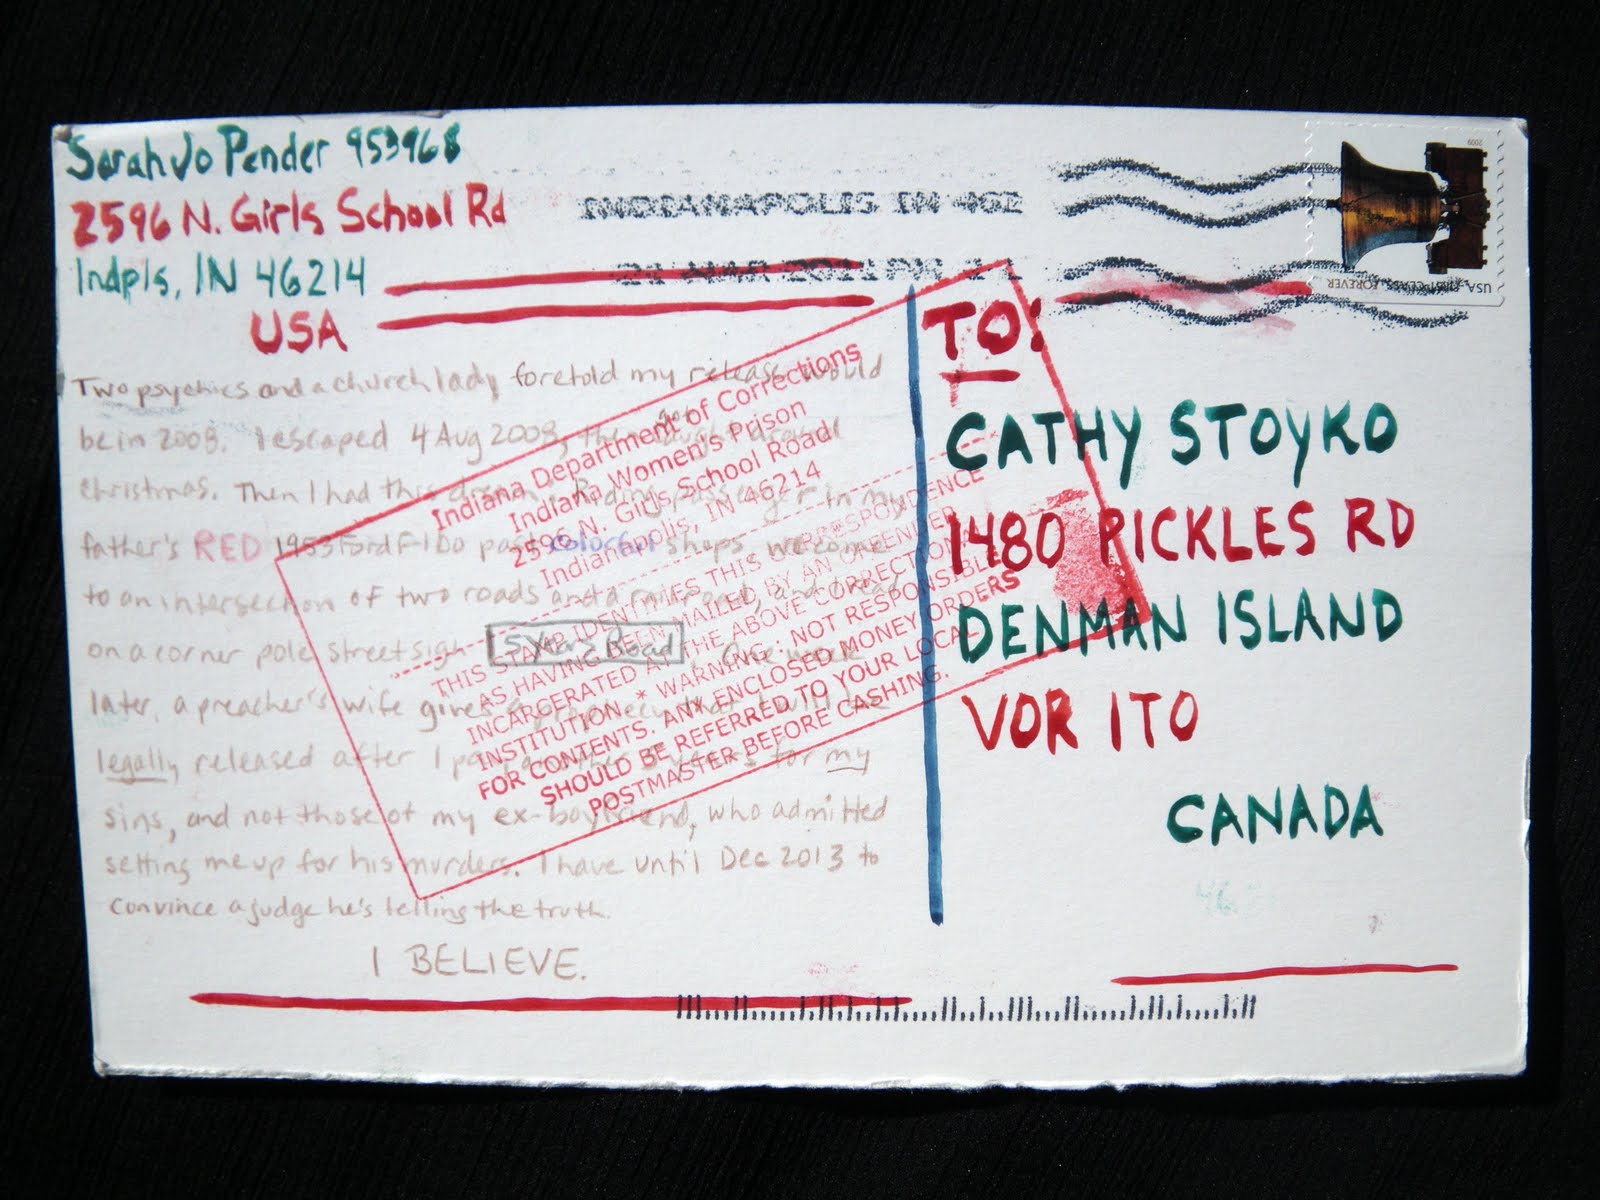 Sarah Jo Pender 953968
2596 N. Girls School Rd
Indpls, IN 46214
USA
INDIANAPOLIS IN 462
21 MAR 2011 PM
2009
USA FIRST-CLASS FOREVER
Two psychics and a church lady foretold my release would
be in 2008. I escaped 4 Aug 2008, then caught around
christmas. Then I had this dream: Riding passenger in my
father's RED 1953 Ford F-100 past colorful shops, we come
to an intersection of two roads and a railroad, and read
on a corner pole street sign 5 Year Road. One week
later, a preacher's wife gives prophecy that I will be
legally released after I pay another 5 years for my
sins, and not those of my ex-boyfriend, who admitted
setting me up for his murders. I have until Dec 2013 to
convince a judge he's telling the truth.
I BELIEVE.
Indiana Department of Corrections
Indiana Women's Prison
2596 N. Girls School Road
Indianapolis, IN 46214
THIS STAMP IDENTIFIES THIS CORRESPONDENCE
AS HAVING BEEN MAILED BY AN OFFENDER
INCARCERATED AT THE ABOVE CORRECTIONAL
INSTITUTION * WARNING: NOT RESPONSIBLE
FOR CONTENTS. ANY ENCLOSED MONEY ORDERS
SHOULD BE REFERRED TO YOUR LOCAL
POSTMASTER BEFORE CASHING.
TO:
CATHY STOYKO
1480 PICKLES RD
DENMAN ISLAND
VOR ITO
CANADA